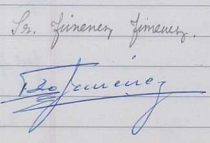 Sr. Jimenez Jimenez.
Fdo Jiménez